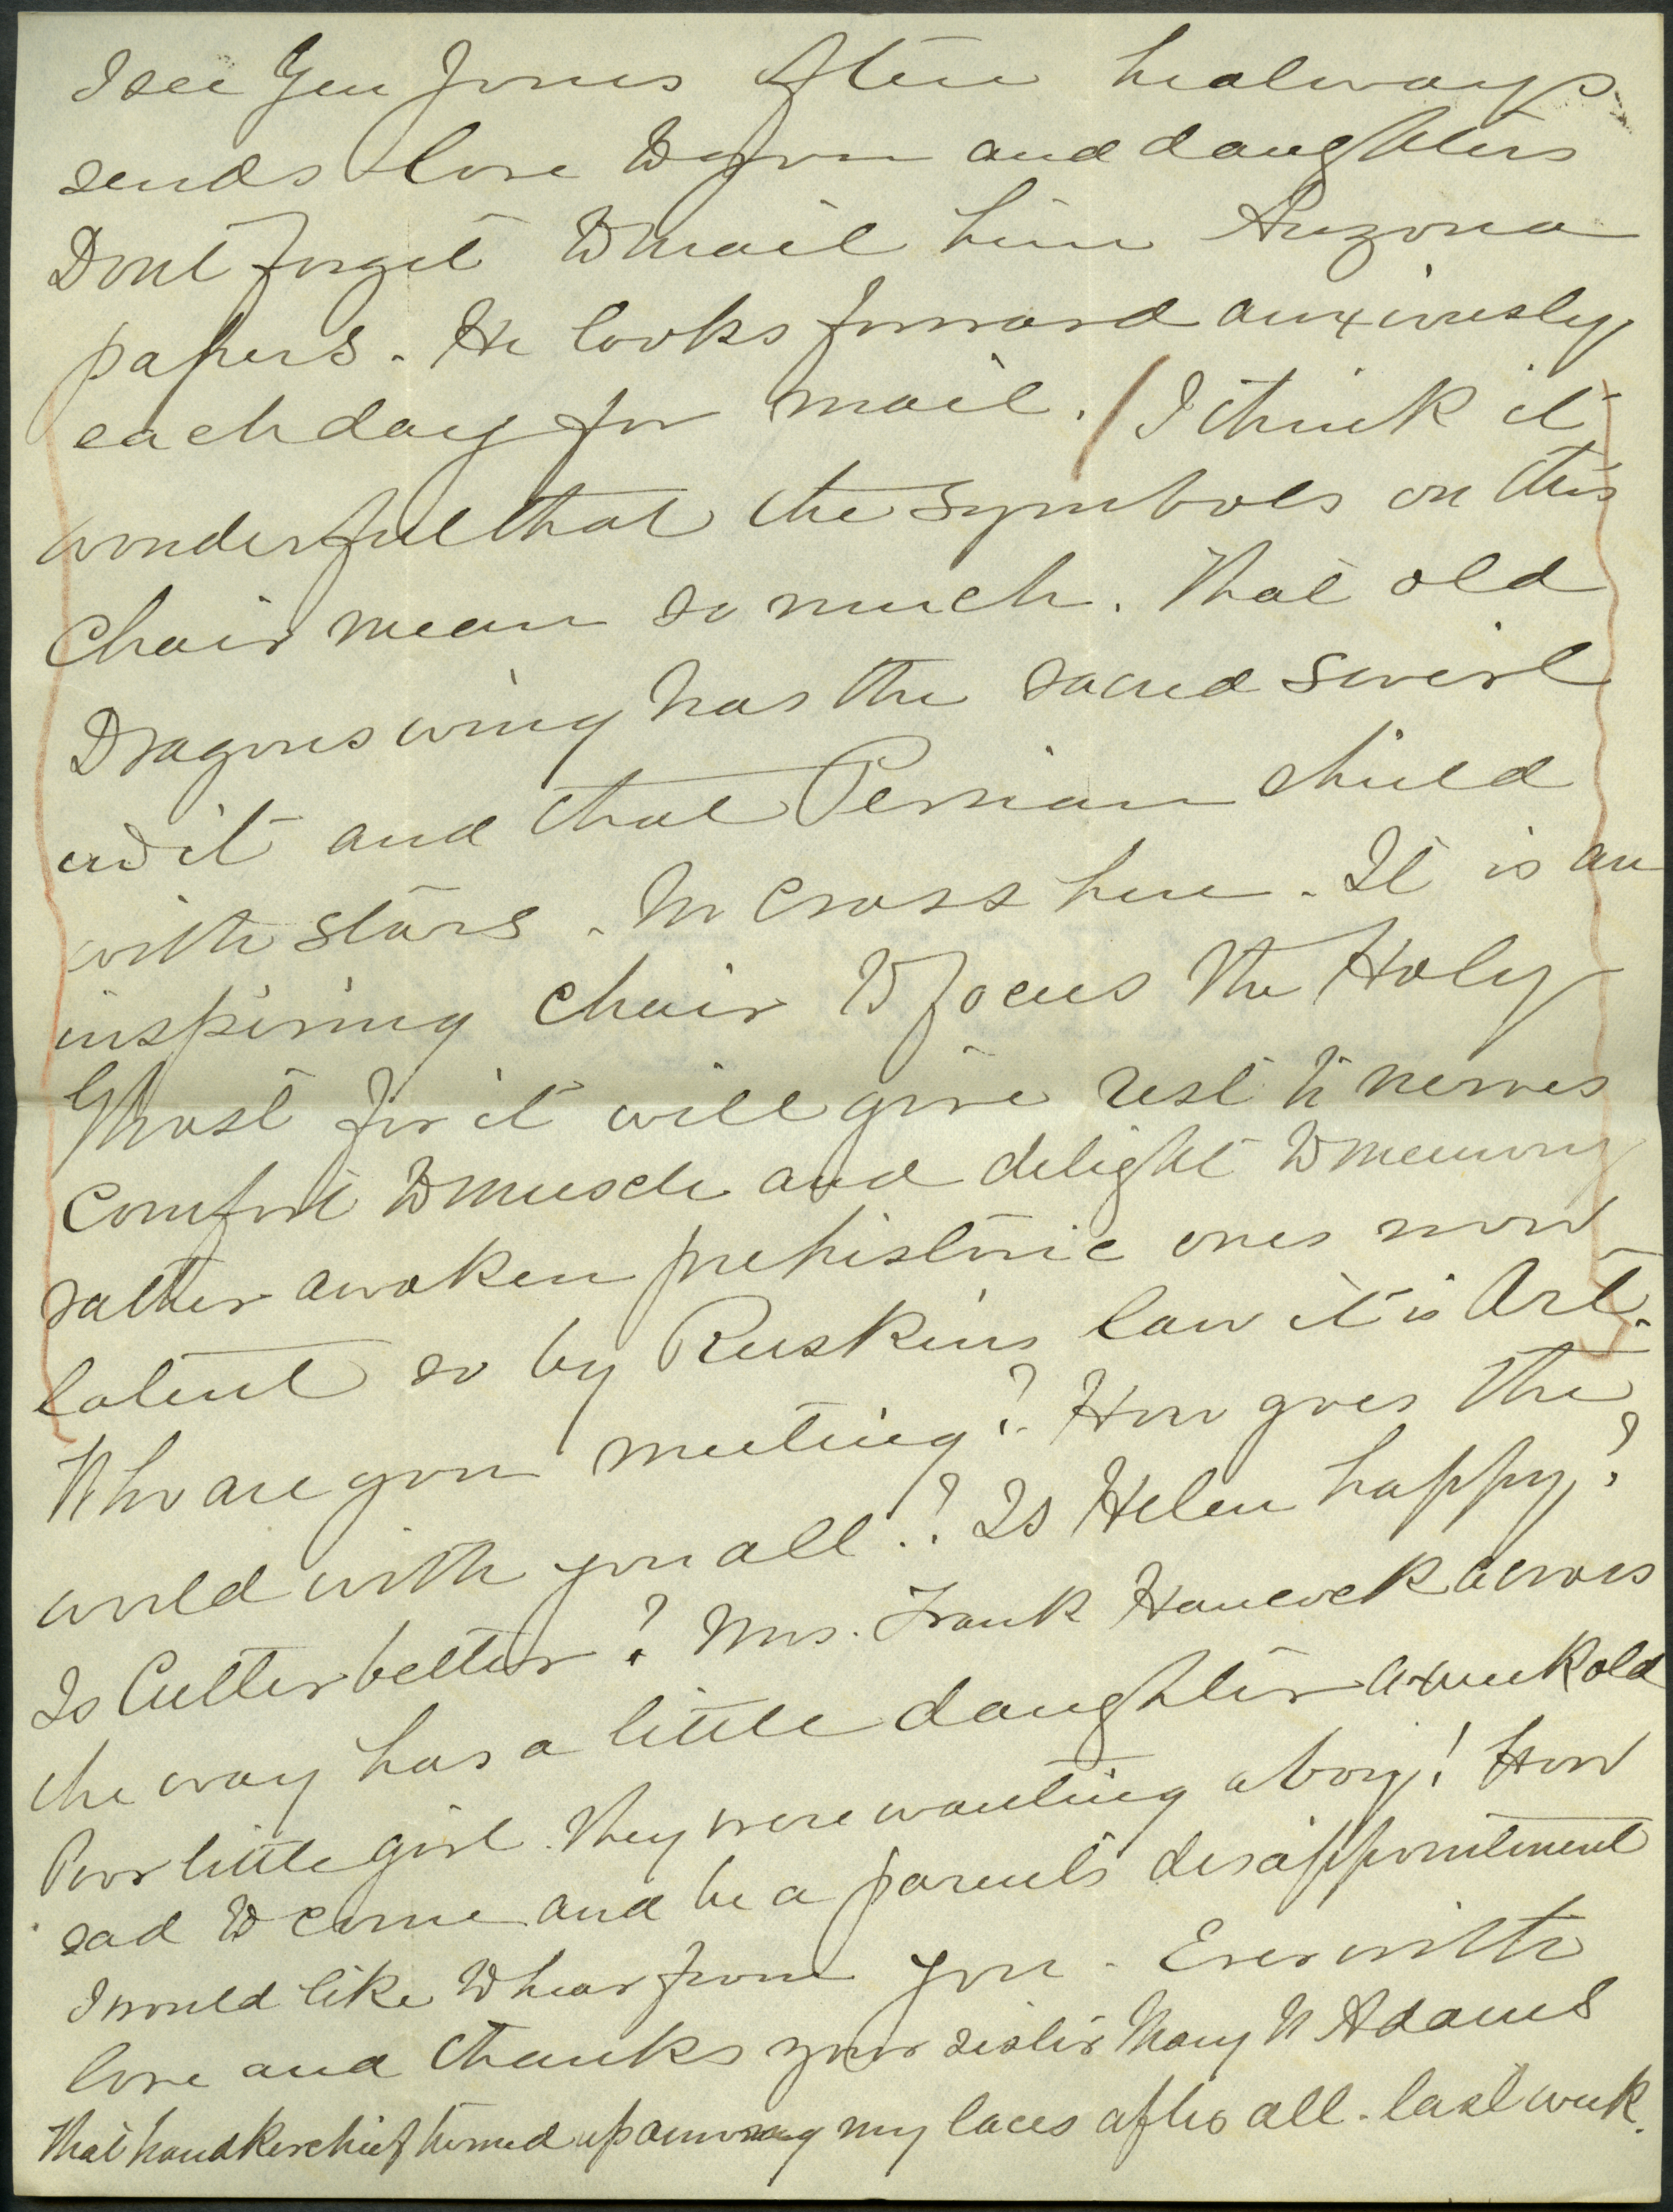 I see Gen Jones often he always
sends love to you and daughters
Dont forget to mail him Arizona
papers. He looks forward anxiously
each day for mail. I think it
wonderful that the symbols on this
Chair mean so much. That old
Dragons wing has the sacred swirl
on it and that Persian shield
with stars. No cross here. It is an
inspiring chair to focus the Holy
Ghost for it will give rest to nerves
Comfort to muscle and delight to memory
rather awaken prehistoric ones now
latent so by Ruskins law it is Art.
Who are you meeting? How goes the
world with you all? Is Helen happy?
Is Cutter better? Mrs. Frank Hancock across
the way has a little daughter a week old
Poor little girl. They were wanting a boy! How
sad to come and be a parents disappointment
I would like to hear from you. Ever with
love and thanks your sister Mary N Adams
That handkerchief turned up among my laces after all. last week.